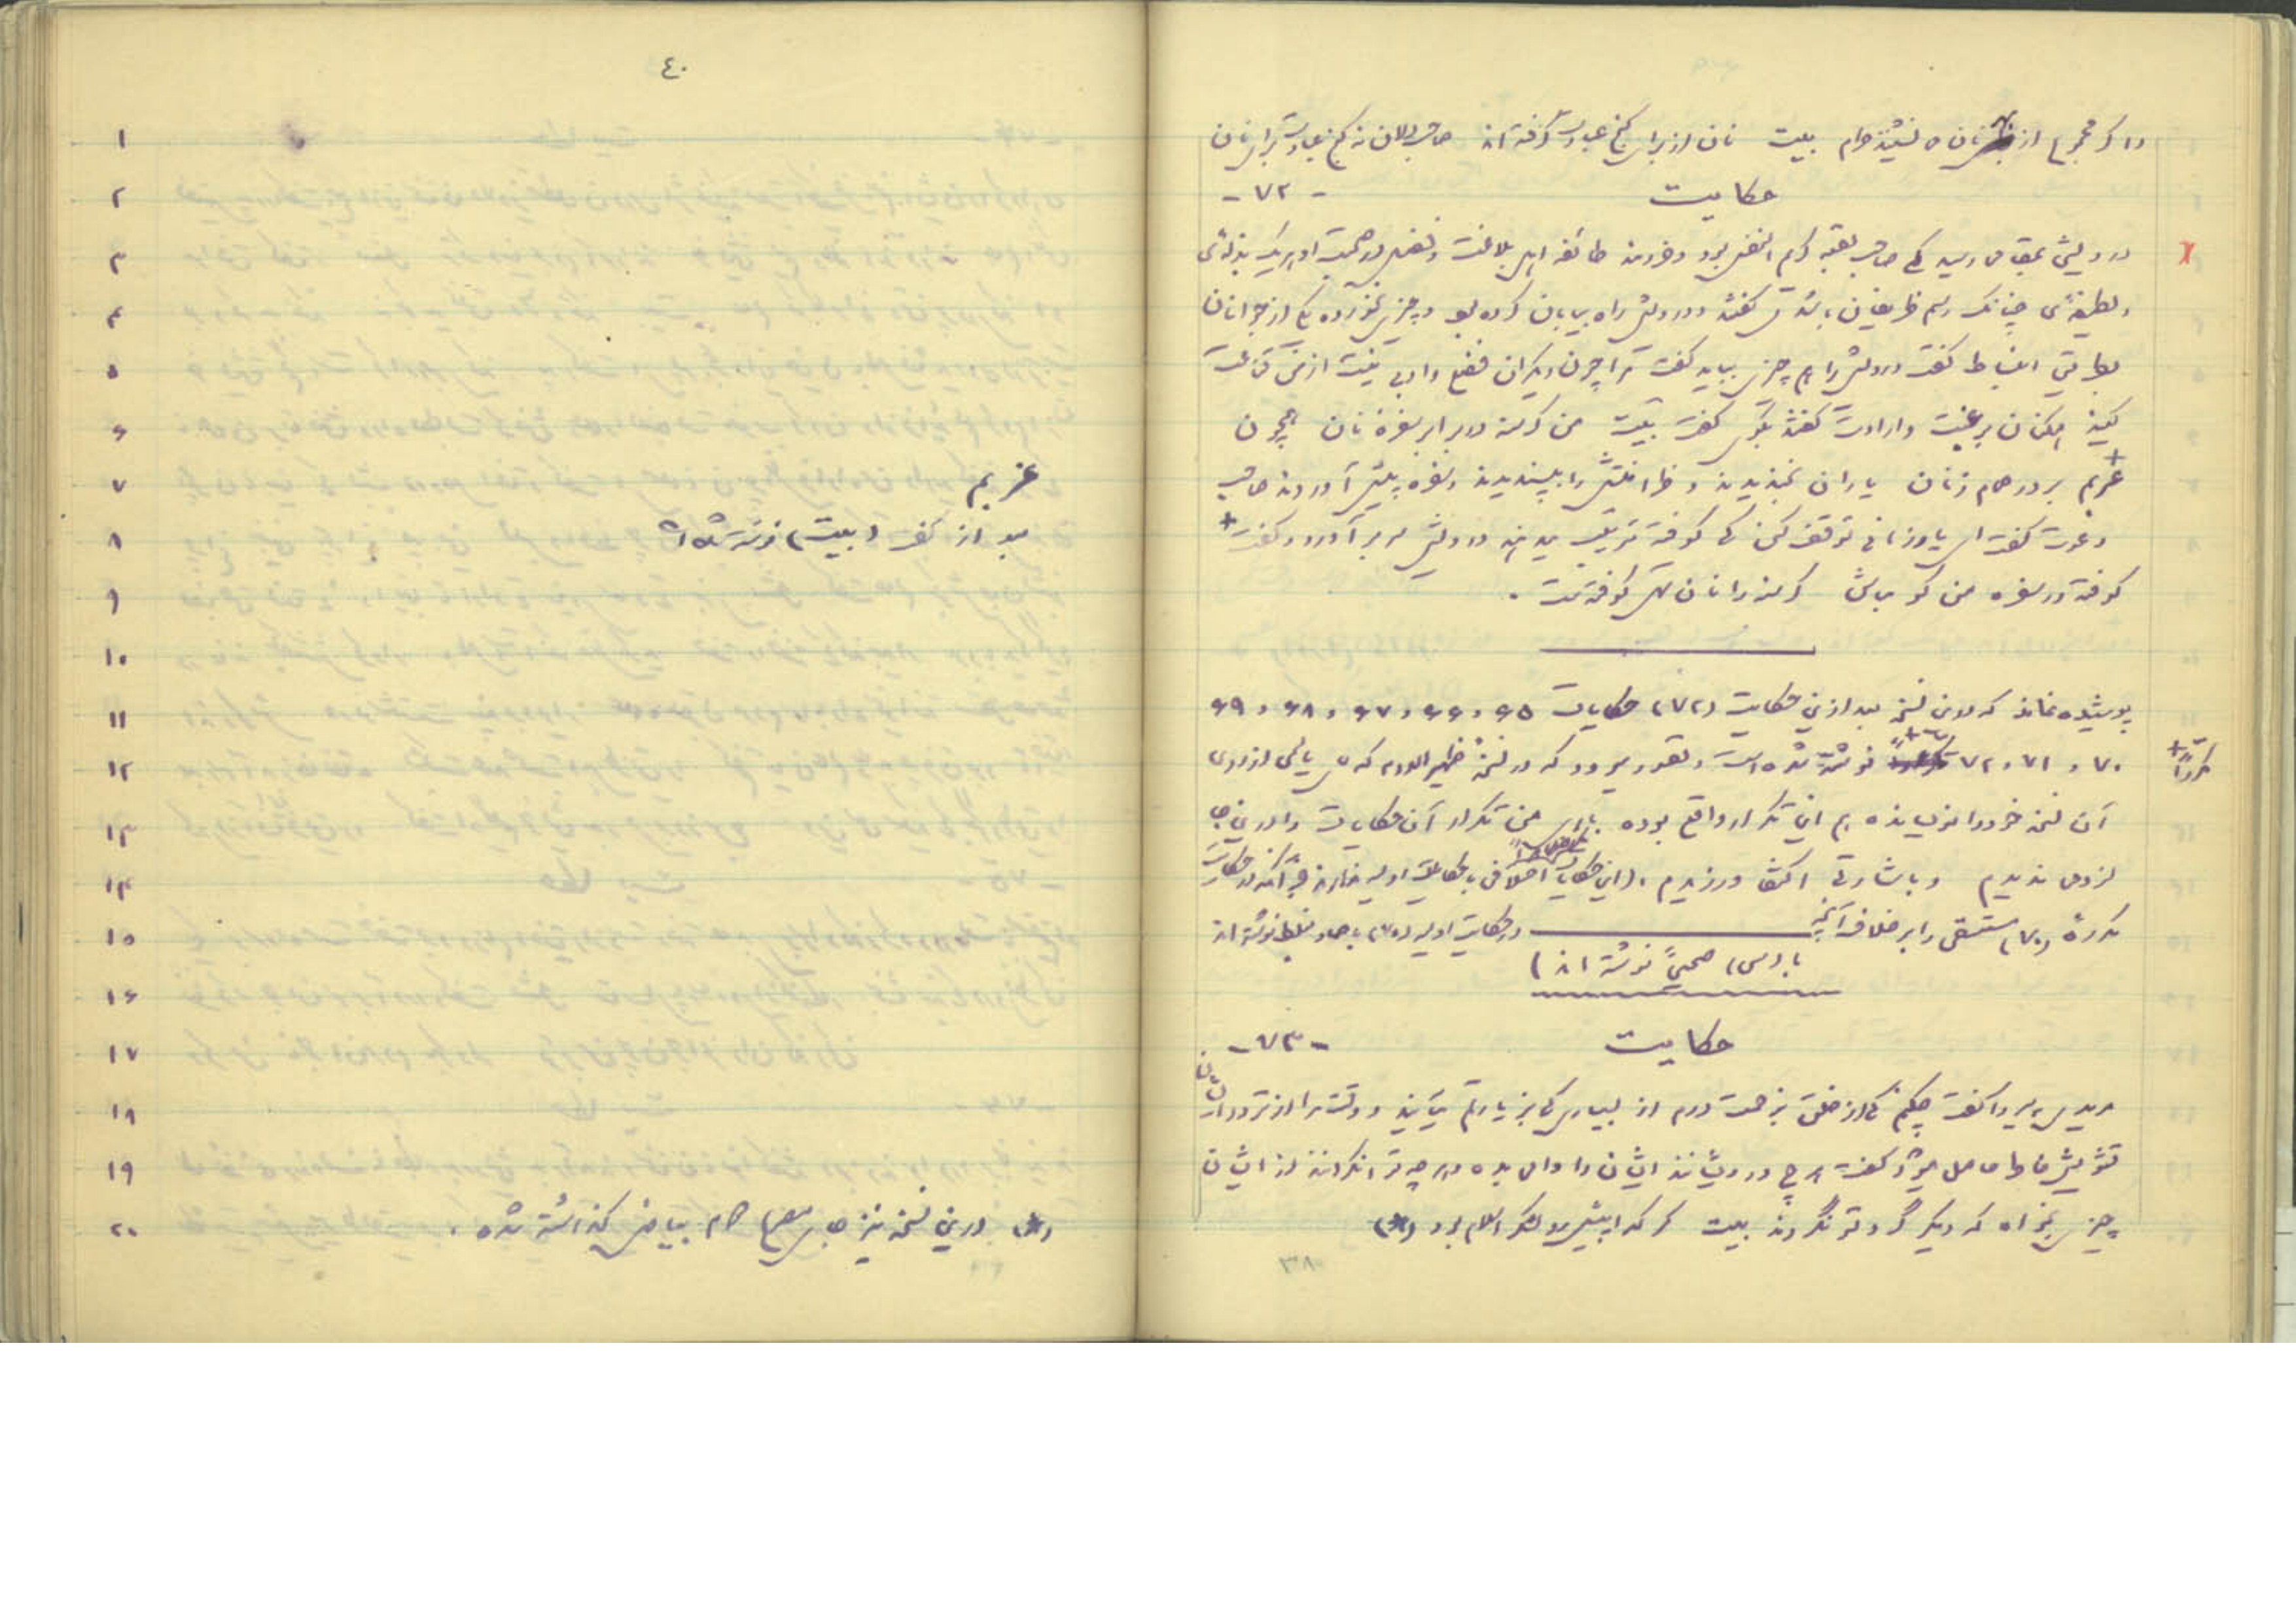 و اگر مجموع از بهر نان می‌نشیند حرام بیت نان از برای کنج عبادت گرفته‌اند صاحبدلان نه کنج عبادت برای نان
حکایت -۷۲-
درویشی بمقامی رسید که صاحب بقعه کریم النفس بود و خردمند طائفه اهل بلاغت و فضل در صحبت او هر یک بذله‌ئی
و لطیفه‌ئی چنانک رسم ظریفان باشد می گفتند و درویش راه بیابان کرده بود و چیزی نخورده یکی از جوانان
بطریق انبساط گفت درویش را هم چیزی بباید گفت مرا چون دیگران فضل و ادبی نیست از من قناعت
کنید همکنان برغبت و ارادت گفتند بگوی گفت بیت من گرسنه در برابر سفرهٔ نان همچون
عزبم بر در حمام زنان یاران بخندیدند و ظرافتش را بپسندیدند و سفره پیش آوردند صاحب
دعوت گفت ای یار زمانی توقف کن که کوفته ترتیب میدهند درویش سر برآورد و گفت +
کوفته در سفره من گو مباش گرسنه را نان تهی کوفتست .
پوشیده نماند که درین نسخه بعد ازین حکایت (۷۲) حکایات ۶۵ ، ۶۶ ، ۶۷ ، ۶۸ ، ۶۹
۷۰ ، ۷۱ ، ۷۲ نوشته شده است و تصور میرود که در نسخهٔ ظهیر الدوله که می‌بایستی از روی
مکرراً +
آن نسخه خود را نویسانده هم این تکرار واقع بوده باری من تکرار آن حکایات را درین جا
لزومی ندیدم و باشارتی اکتفا ورزیدم . (این حکایات اختلافی با حکایات اولیه ندارند جز آنکه در حکایت
مکررهٔ (۷۰) مستسقی را بر خلاف آنچه در حکایت اولیه (۷۰) با صاد غلط نوشته‌اند
با (س) صحیحاً نوشته‌اند )
حکایت -۷۳-
مریدی پیر را گفت چکنم که از خلق بزحمت درم از بسیاری که بزیارتم می‌آیند و وقت مرا از تردد ایشان
تشویش خاطر حاصل میشود گفت هر چه درویشانند ایشان را وامی بده و هر چه توانگرانند از ایشان
چیزی بخواه که دیگر گرد تو نگردند بیت گر گدا پیشرو لشکر اسلام بود (*)
۳۸
٤٠
۱
۲
۳
۴
۵
۶
۷ عزیم
۸ بعد از گفت (بیت) نوشته شده است
۹
۱۰
۱۱
۱۲
۱۳
۱۴
۱۵
۱۶
۱۷
۱۸
۱۹
۲۰ (*) درین نسخه نیز جای مصراع دوم بیاض گذاشته شده .